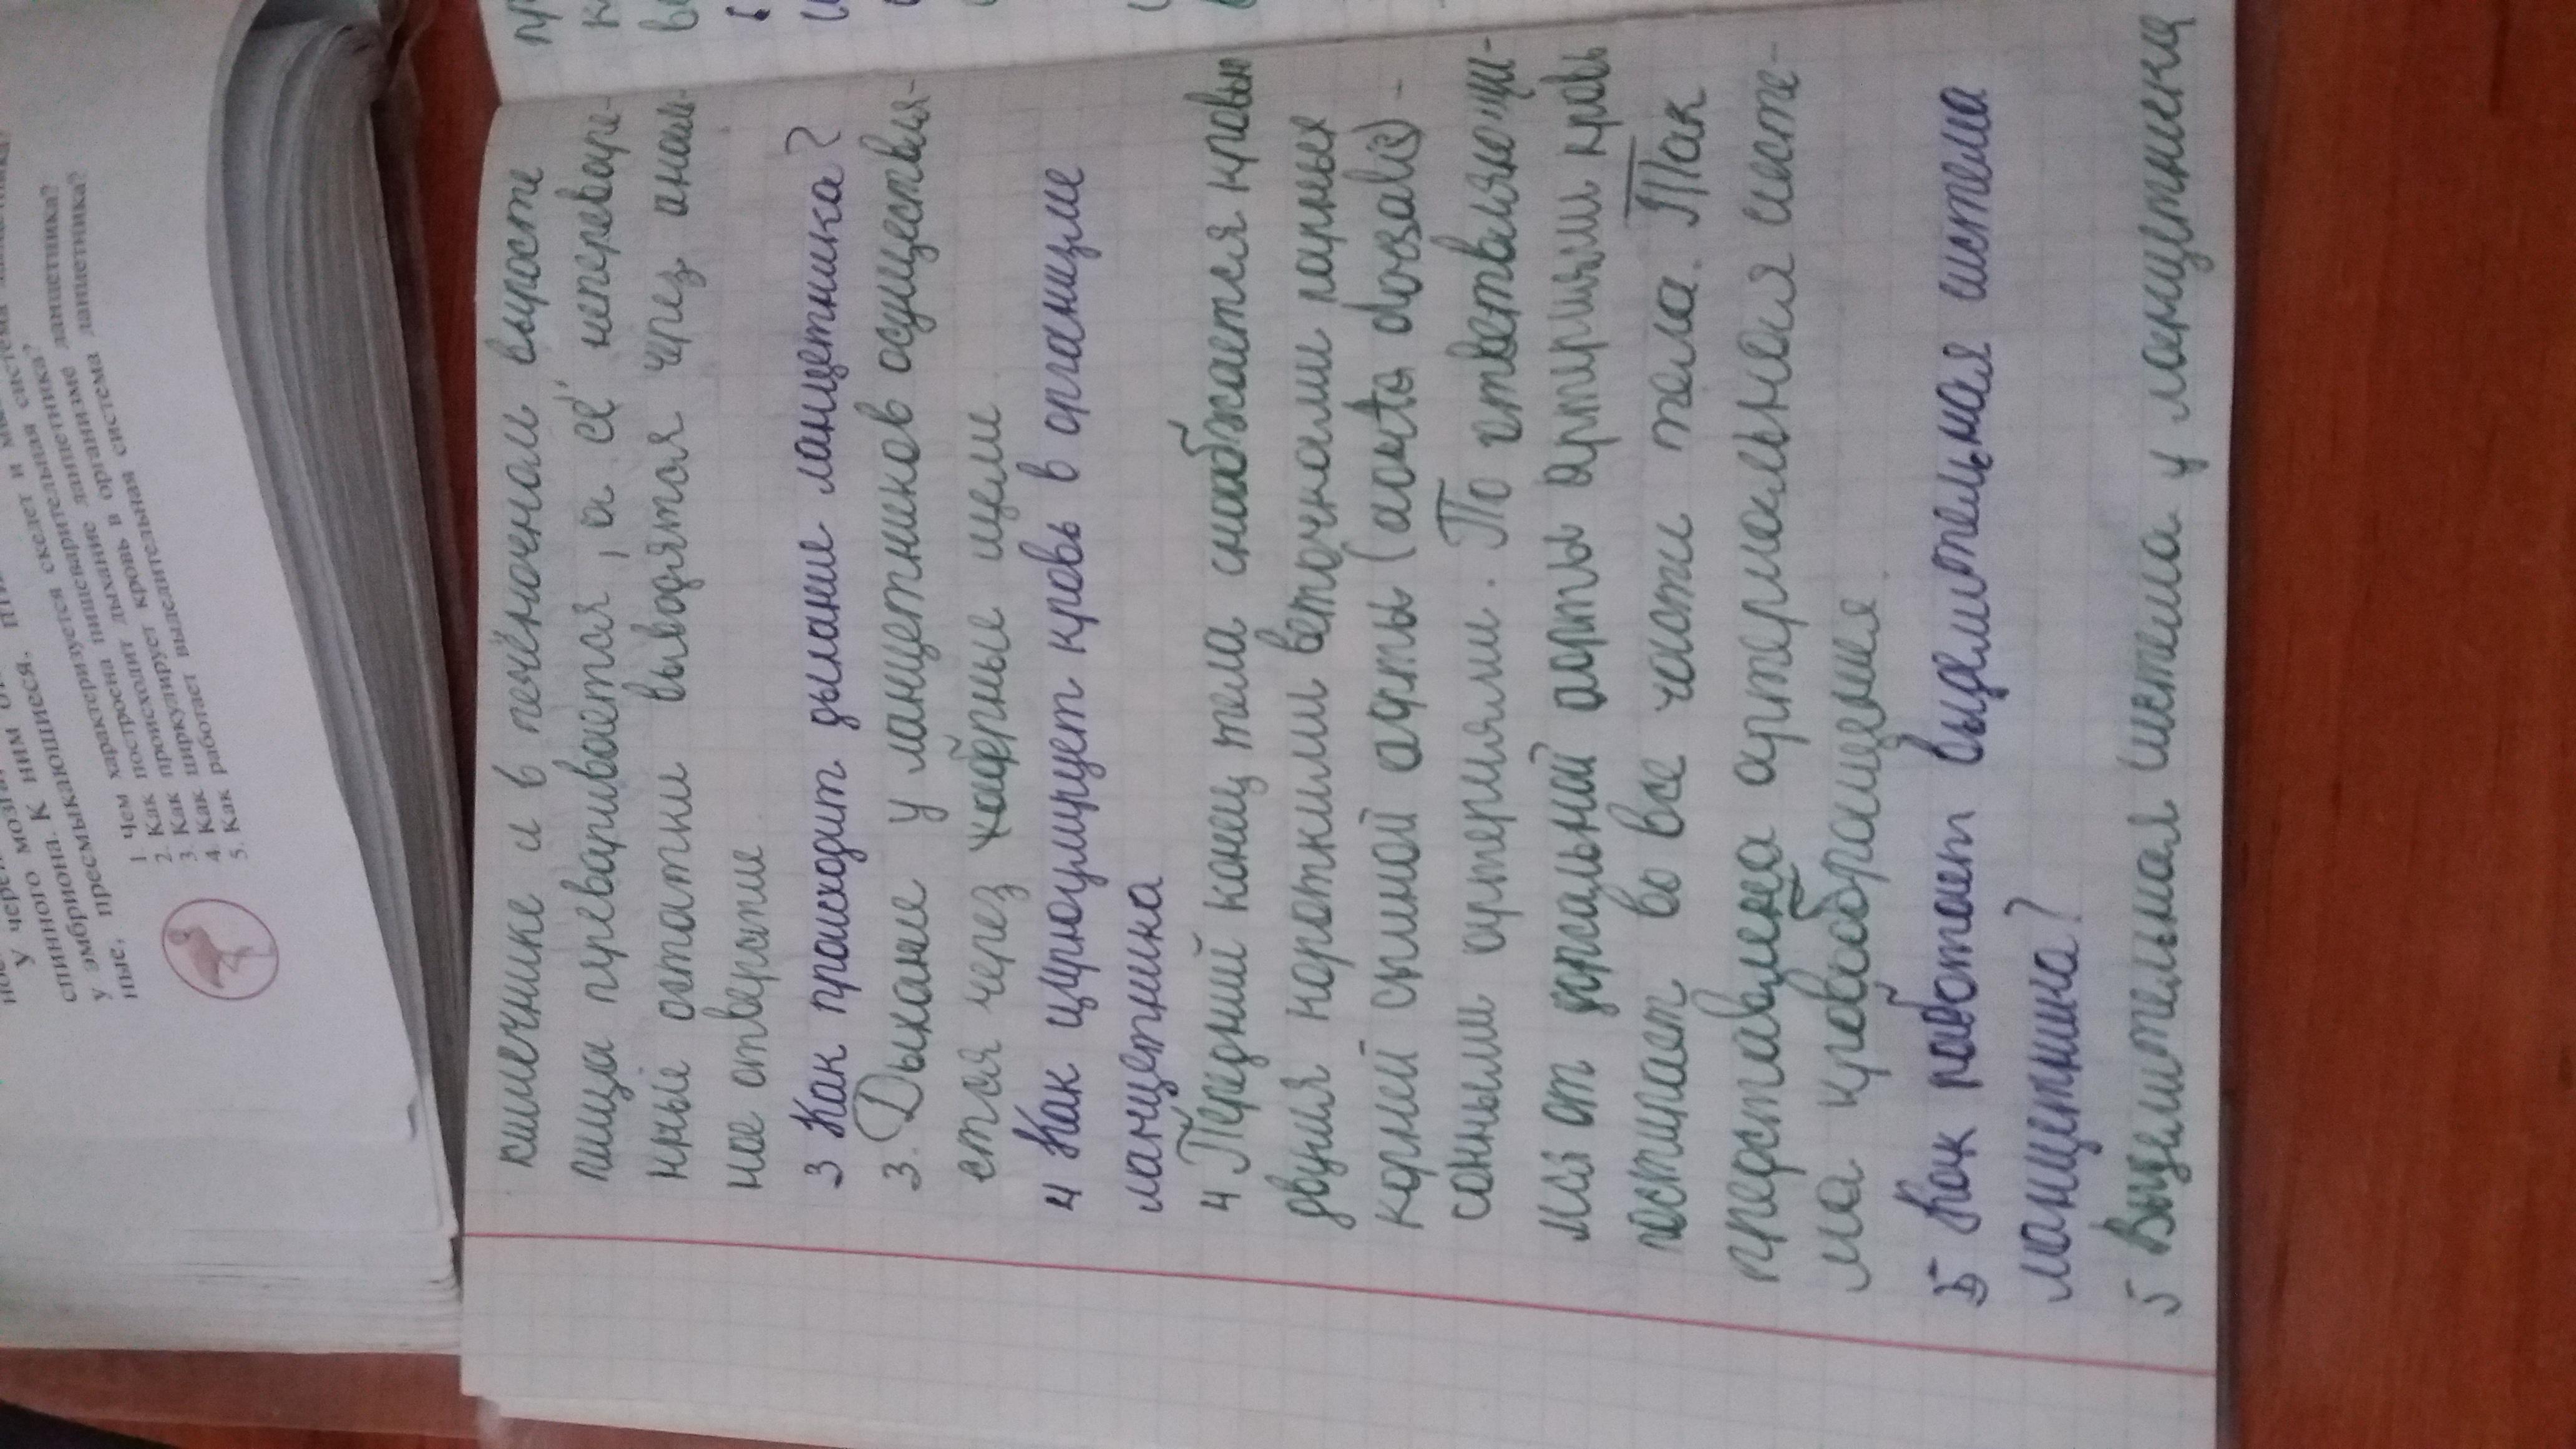 спинного. К ним
у эмбриона.
ные, пресмыкающиеся.
1. Чем характеризуется скелет и
2. Как построена пищеварительная система?
3. Как происходит дыхание ланцетника?
4. Как циркулирует кровь в организме ланцетника?
5. Как работает выделительная система ланцетника?
кишечнике и в печёночном выросте
пища переваривается, а её непереваре-
нные остатки выводятся чрез аналь-
ное отверстие
3 Как происходит дыхание ланцетника?
3. Дыхание у ланцетников осуществля-
ется через жаберные щели
4 Как циркулирует кровь в организме
ланцетника
4 Передний конец тела снабжается кровью
двумя короткими веточками парных
корней спиной аорты (aorta dorsalis) -
сонными артериями. По ответвляющи-
мся от дорсальной аорты артериям кровь
поступает во все части тела. Так
представлена артериальная систе-
ма кровообращения
5 Как работает выделительная система
ланцетника?
5 Выделительная система у ланцетника